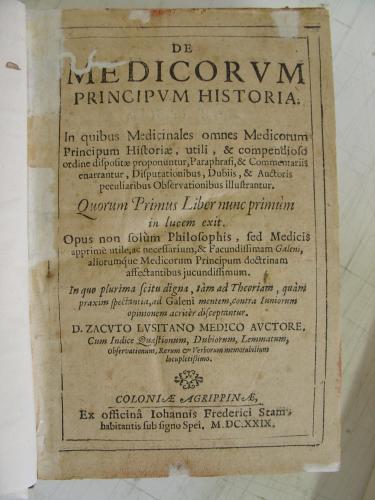 DE
MEDICORVM
PRINCIPVM HISTORIA.
In quibus Medicinales omnes Medicorum
Principum Historiæ, utili, & compendioso
ordine dispositæ proponuntur, Paraphrasi, & Commentariis
enarrantur, Disputationibus, Dubiis, & Auctoris
peculiaribus Observationibus illustrantur.
Quorum Primus Liber nunc primùm
in lucem exit.
Opus non solùm Philosophis, sed Medicis
apprimè utile, ac necessarium, & Facundissimam Galeni,
aliorumque Medicorum Principum doctrinam
affectantibus jucundissimum.
In quo plurima scitu digna, tàm ad Theoriam, quàm
praxim spectantia, ad Galeni mentem, contra Iuniorum
opinionem acritèr disceptantur.
D. ZACVTO LVSITANO MEDICO AVCTORE.
Cum Indice Quæstionum, Dubiorum, Lemmatum,
Observationum, Rerum & Verborum memorabilium
locupletissimo.
COLONIÆ AGRIPPINÆ,
Ex officinâ Iohannis Frederici Stam,
habitantis sub signo Spei. M.DC.XXIX.